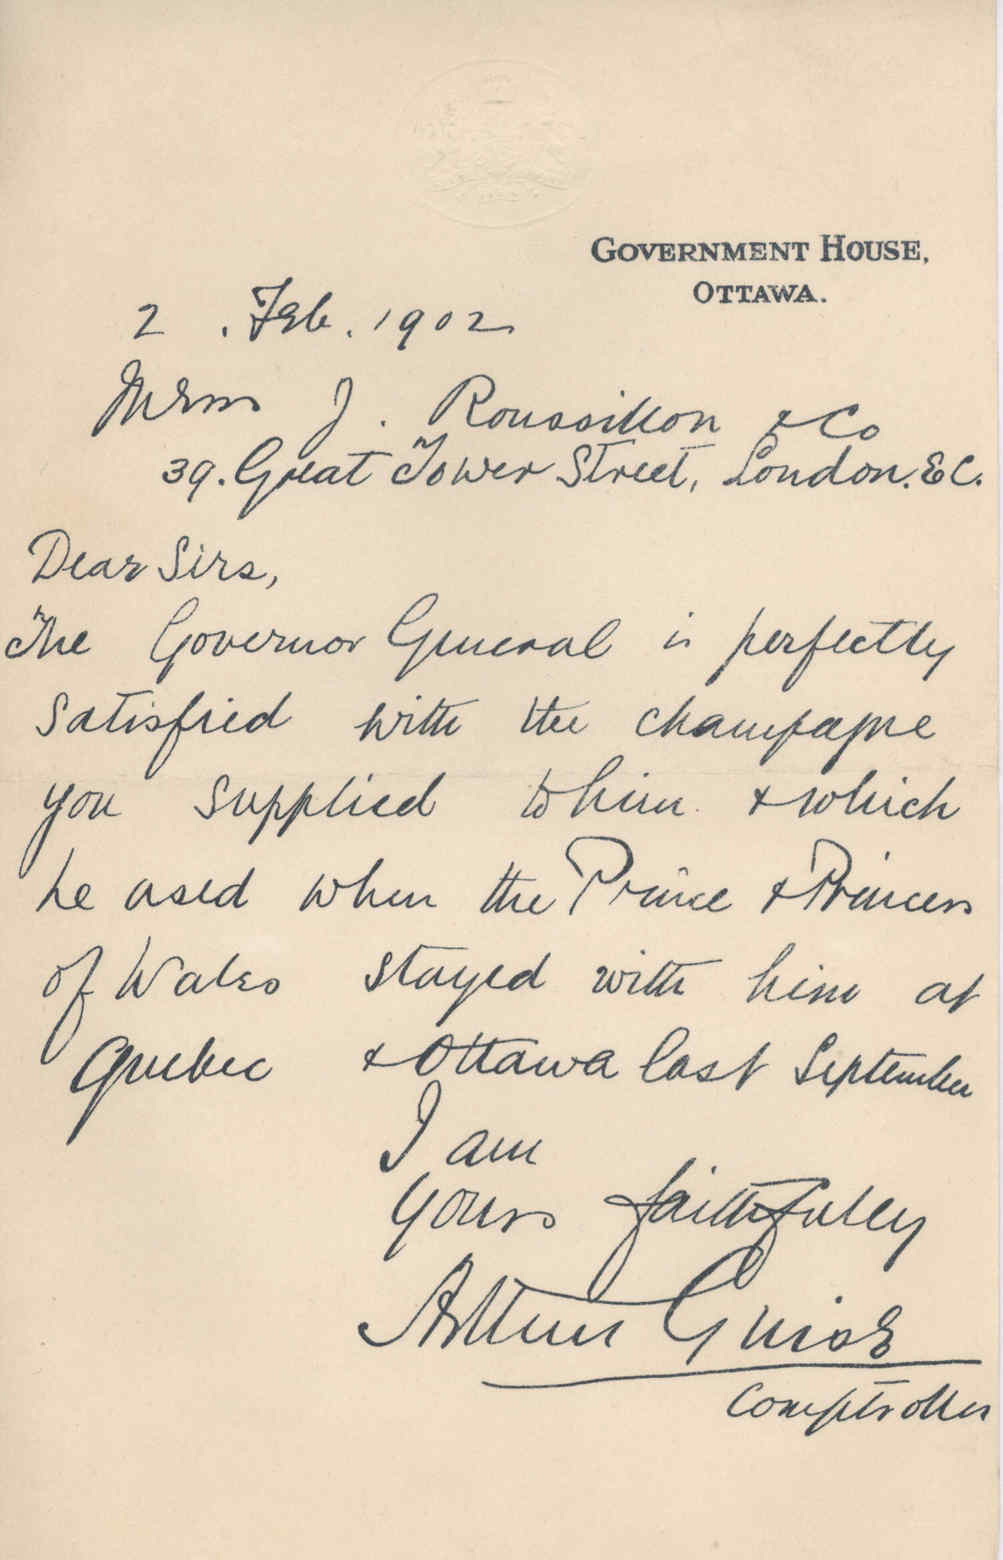 GOVERNMENT HOUSE,
OTTAWA.
2 . Feb. 1902
Messrs J. Roussillon & Co
39. Great Tower Street, London. E C.
Dear Sirs,
The Governor General is perfectly
satisfied with the champagne
you supplied to him & which
he used when the Prince & Princess
of Wales stayed with him at
Quebec & Ottawa last September
I am
Yours faithfully
Arthur Guise
Comptroller